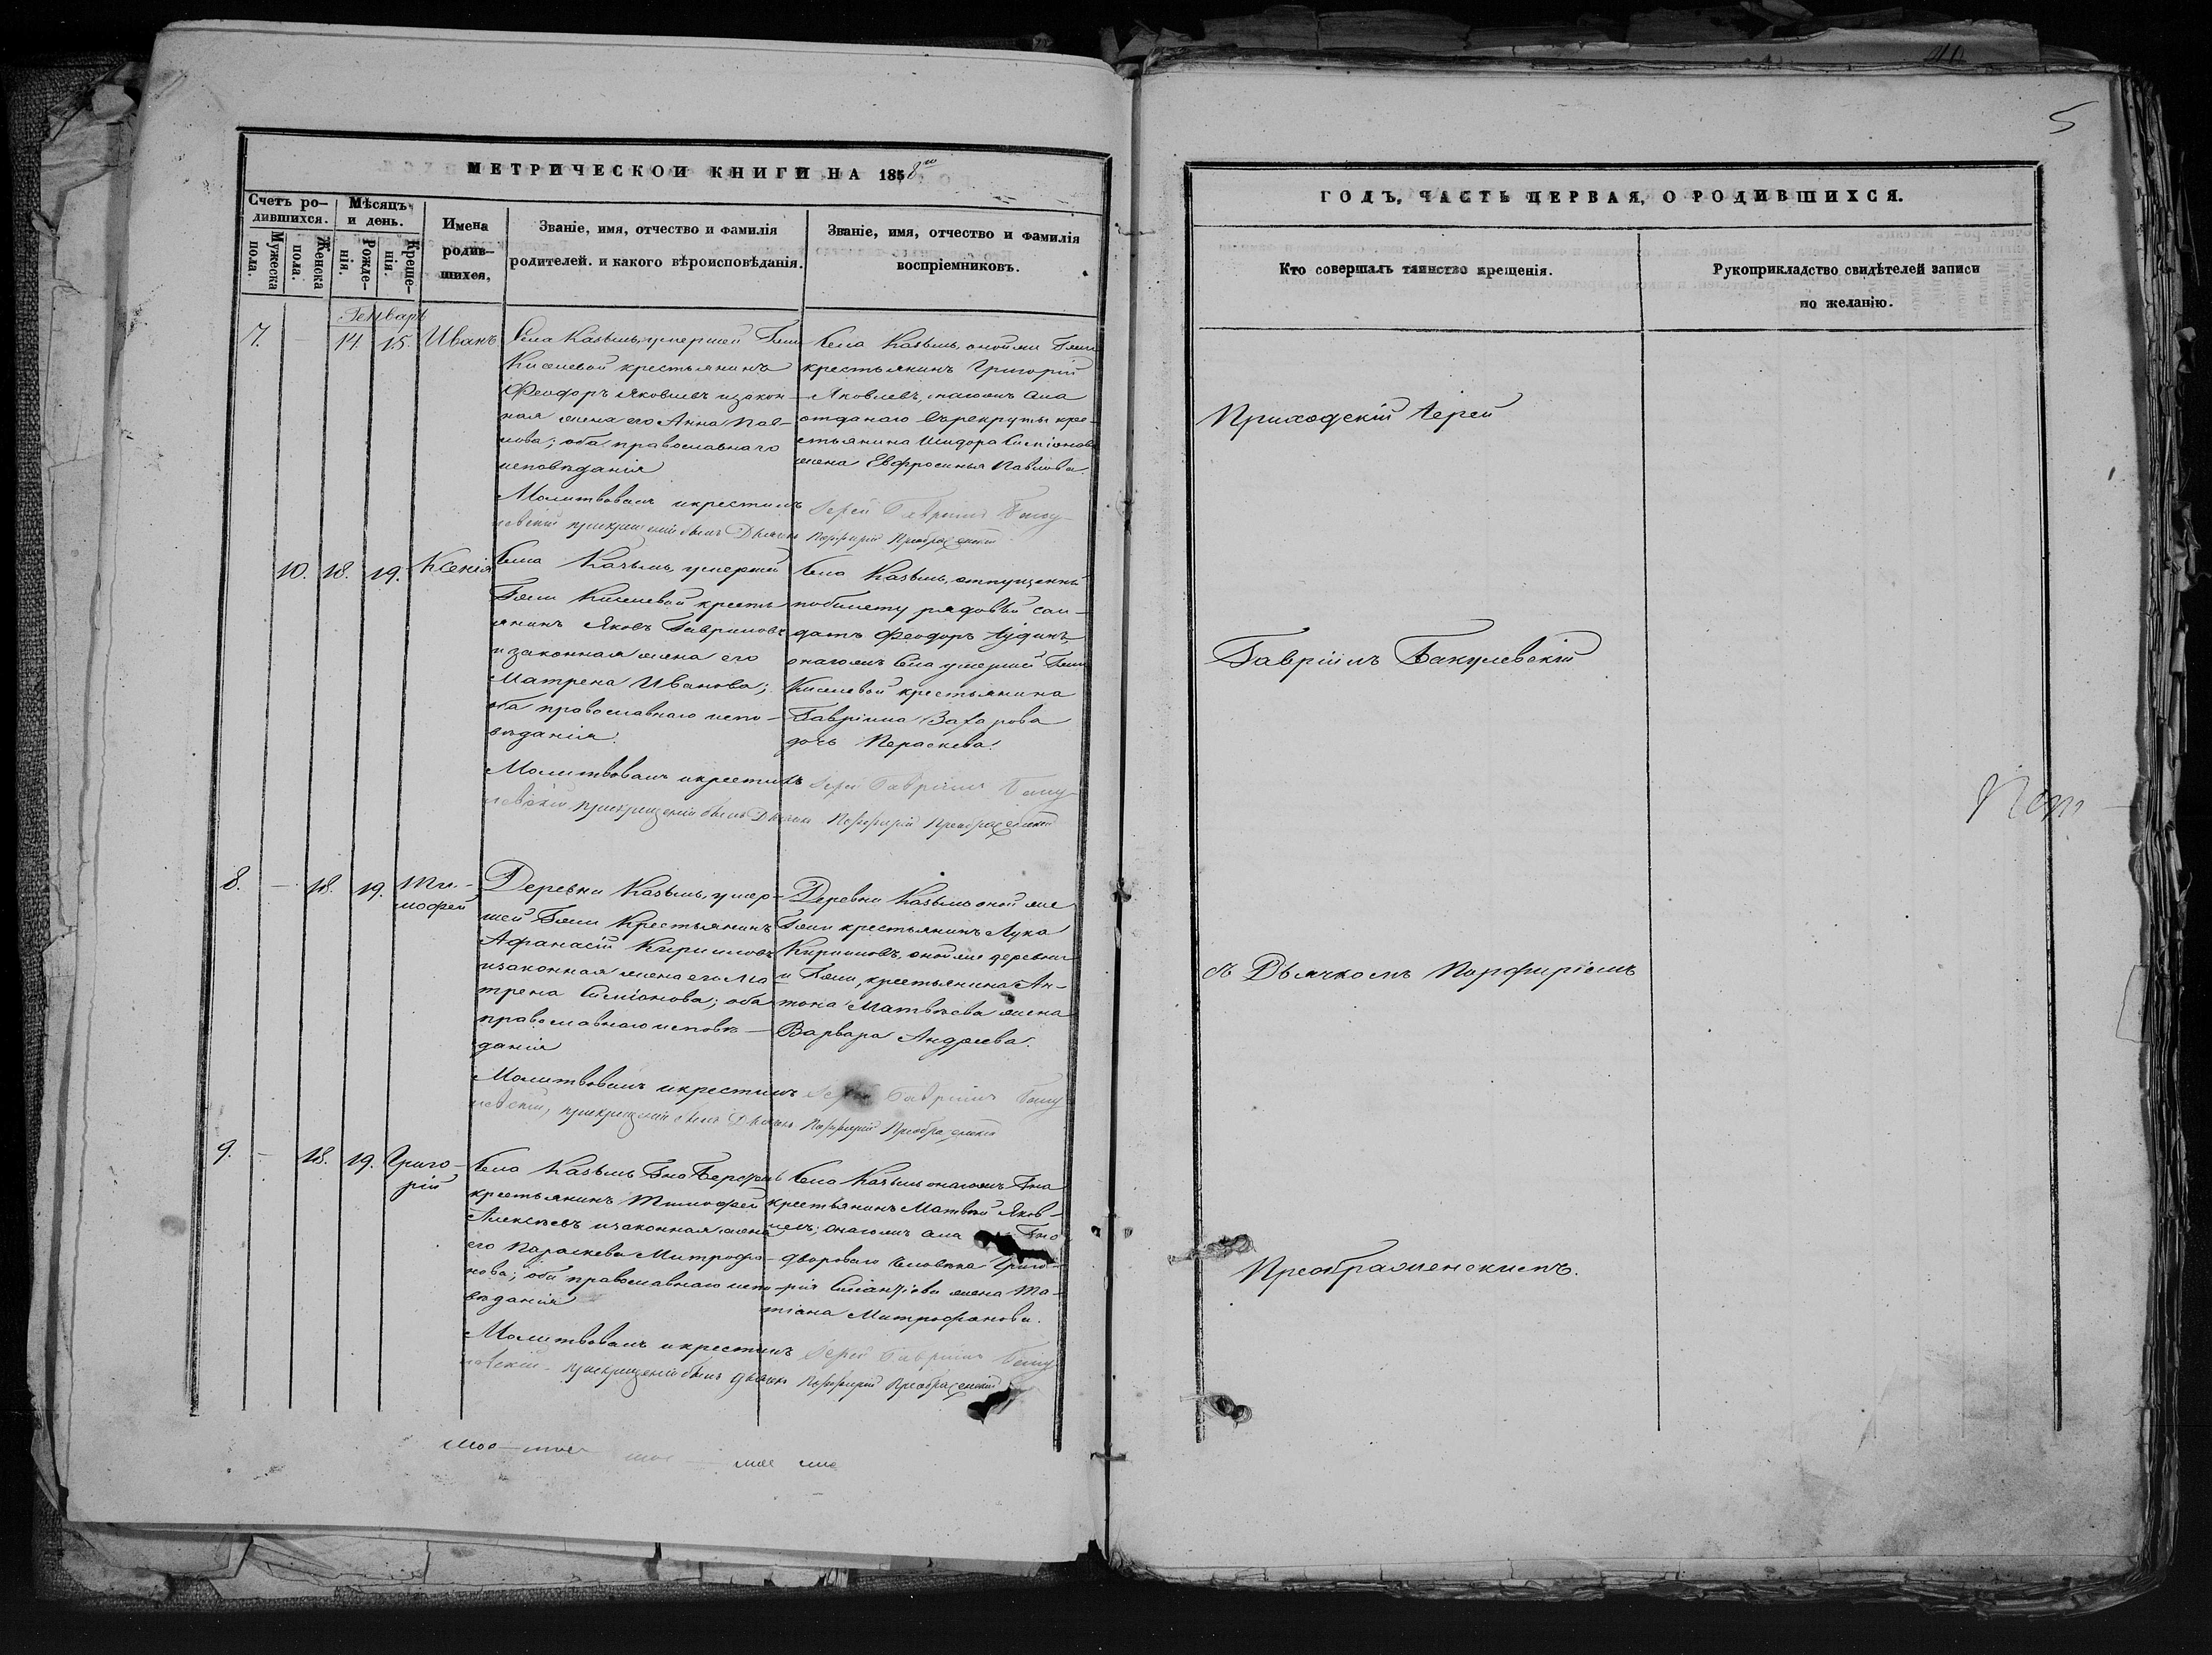 МЕТРИЧЕСКОЙ КНИГИ НА 1858го
Счетъ родившихся.
Мужеска пола.
Женска пола.
Мѣсяцъ и день.
Рожденія.
Крещенія.
Имена родившихся.
Званіе, имя, отчество и фамилія родителей. и какого вѣроисповѣданія.
Званіе, имя, отчество и фамилія воспріемниковъ.
Генварь
7. — 14. 15. Иванъ
Села Казьмъ, умершей Гжи
Киселевой крестьянинъ
Феодоръ Яковлевъ изакон-
ная жена его Анна Пав-
лова; оба православнаго
исповѣданія
Села Казьмъ, онойже Гжи
крестьянинъ Григорій
Яковлевъ, тагожъ села
отданаго въ рекруты кре-
стьянина Исидора Симіонова
жена Евфросинья Павлова.
Молитвовалъ икрестилъ Іерей Гавріилъ Баку-
левскій прикрещеніи былъ Дьячекъ Порфирій Преображенскій
10. 18. 19. Ксенія
Села Казьмъ, умершей
Гжи Киселевой кресть
янинъ Яковъ Гавриловъ
и законная жена его
Матрена Иванова;
оба православнаго испо-
вѣданія.
Села Казьмъ, отпущенный
побилету рядовый сол-
датъ Феодоръ Іудинъ,
онагожъ Села умершей Гжи
Киселевой крестьянина
Гавріила Захарова
дочь Параскева.
Молитвовалъ икрестилъ Іерей Гавріилъ Баку-
левскій прикрещеніи былъ Дьячекъ Порфирій Преображенскій
8. — 18. 19. Ти-
мофей
Деревни Казьмъ, умер-
шей Гжи Крестьянинъ
Афанасій Кириловъ
изаконная жена его Ма
трена Симіонова; оба
православнаго исповѣ-
данія
Деревни Казьмъ оной же
Гжи крестьянинъ Лука
Кириловъ, онойже деревни
и Гжи, крестьянина Ан-
тона Матвѣева жена
Варвара Андреева.
Молитвовалъ икрестилъ Іерей Гавріилъ Баку
левскій, прикрещеніи былъ Дьячекъ Порфирій Преображенскій
9. — 18. 19. Григо-
рій
Село Казьмъ Гна
крестьянинъ Тимофей
Алексѣевъ изаконная жена
его Параскева Митрофа-
нова; оба православнаго испо
вѣданія
Село Казьмъ онагожъ Гна
крестьянинъ Матвѣй Яков-
левъ; онагожъ села Гна
двороваго человѣка Григо-
рія жена Та-
тіана Митрофанова.
Молитвовалъ икрестилъ Іерей Гавріилъ Баку
левскій прикрещеніи былъ дьячекъ Порфирій Преображенскій
5
ГОДЪ, ЧАСТЬ ПЕРВАЯ, О РОДИВШИХСЯ.
Кто совершалъ таинство крещенія.
Рукоприкладство свидѣтелей записи
по желанію.
Приходскій Іерей
Гавріилъ Бакулевскій
съ Дьячкомъ Порфиріемъ
Преображенскимъ.